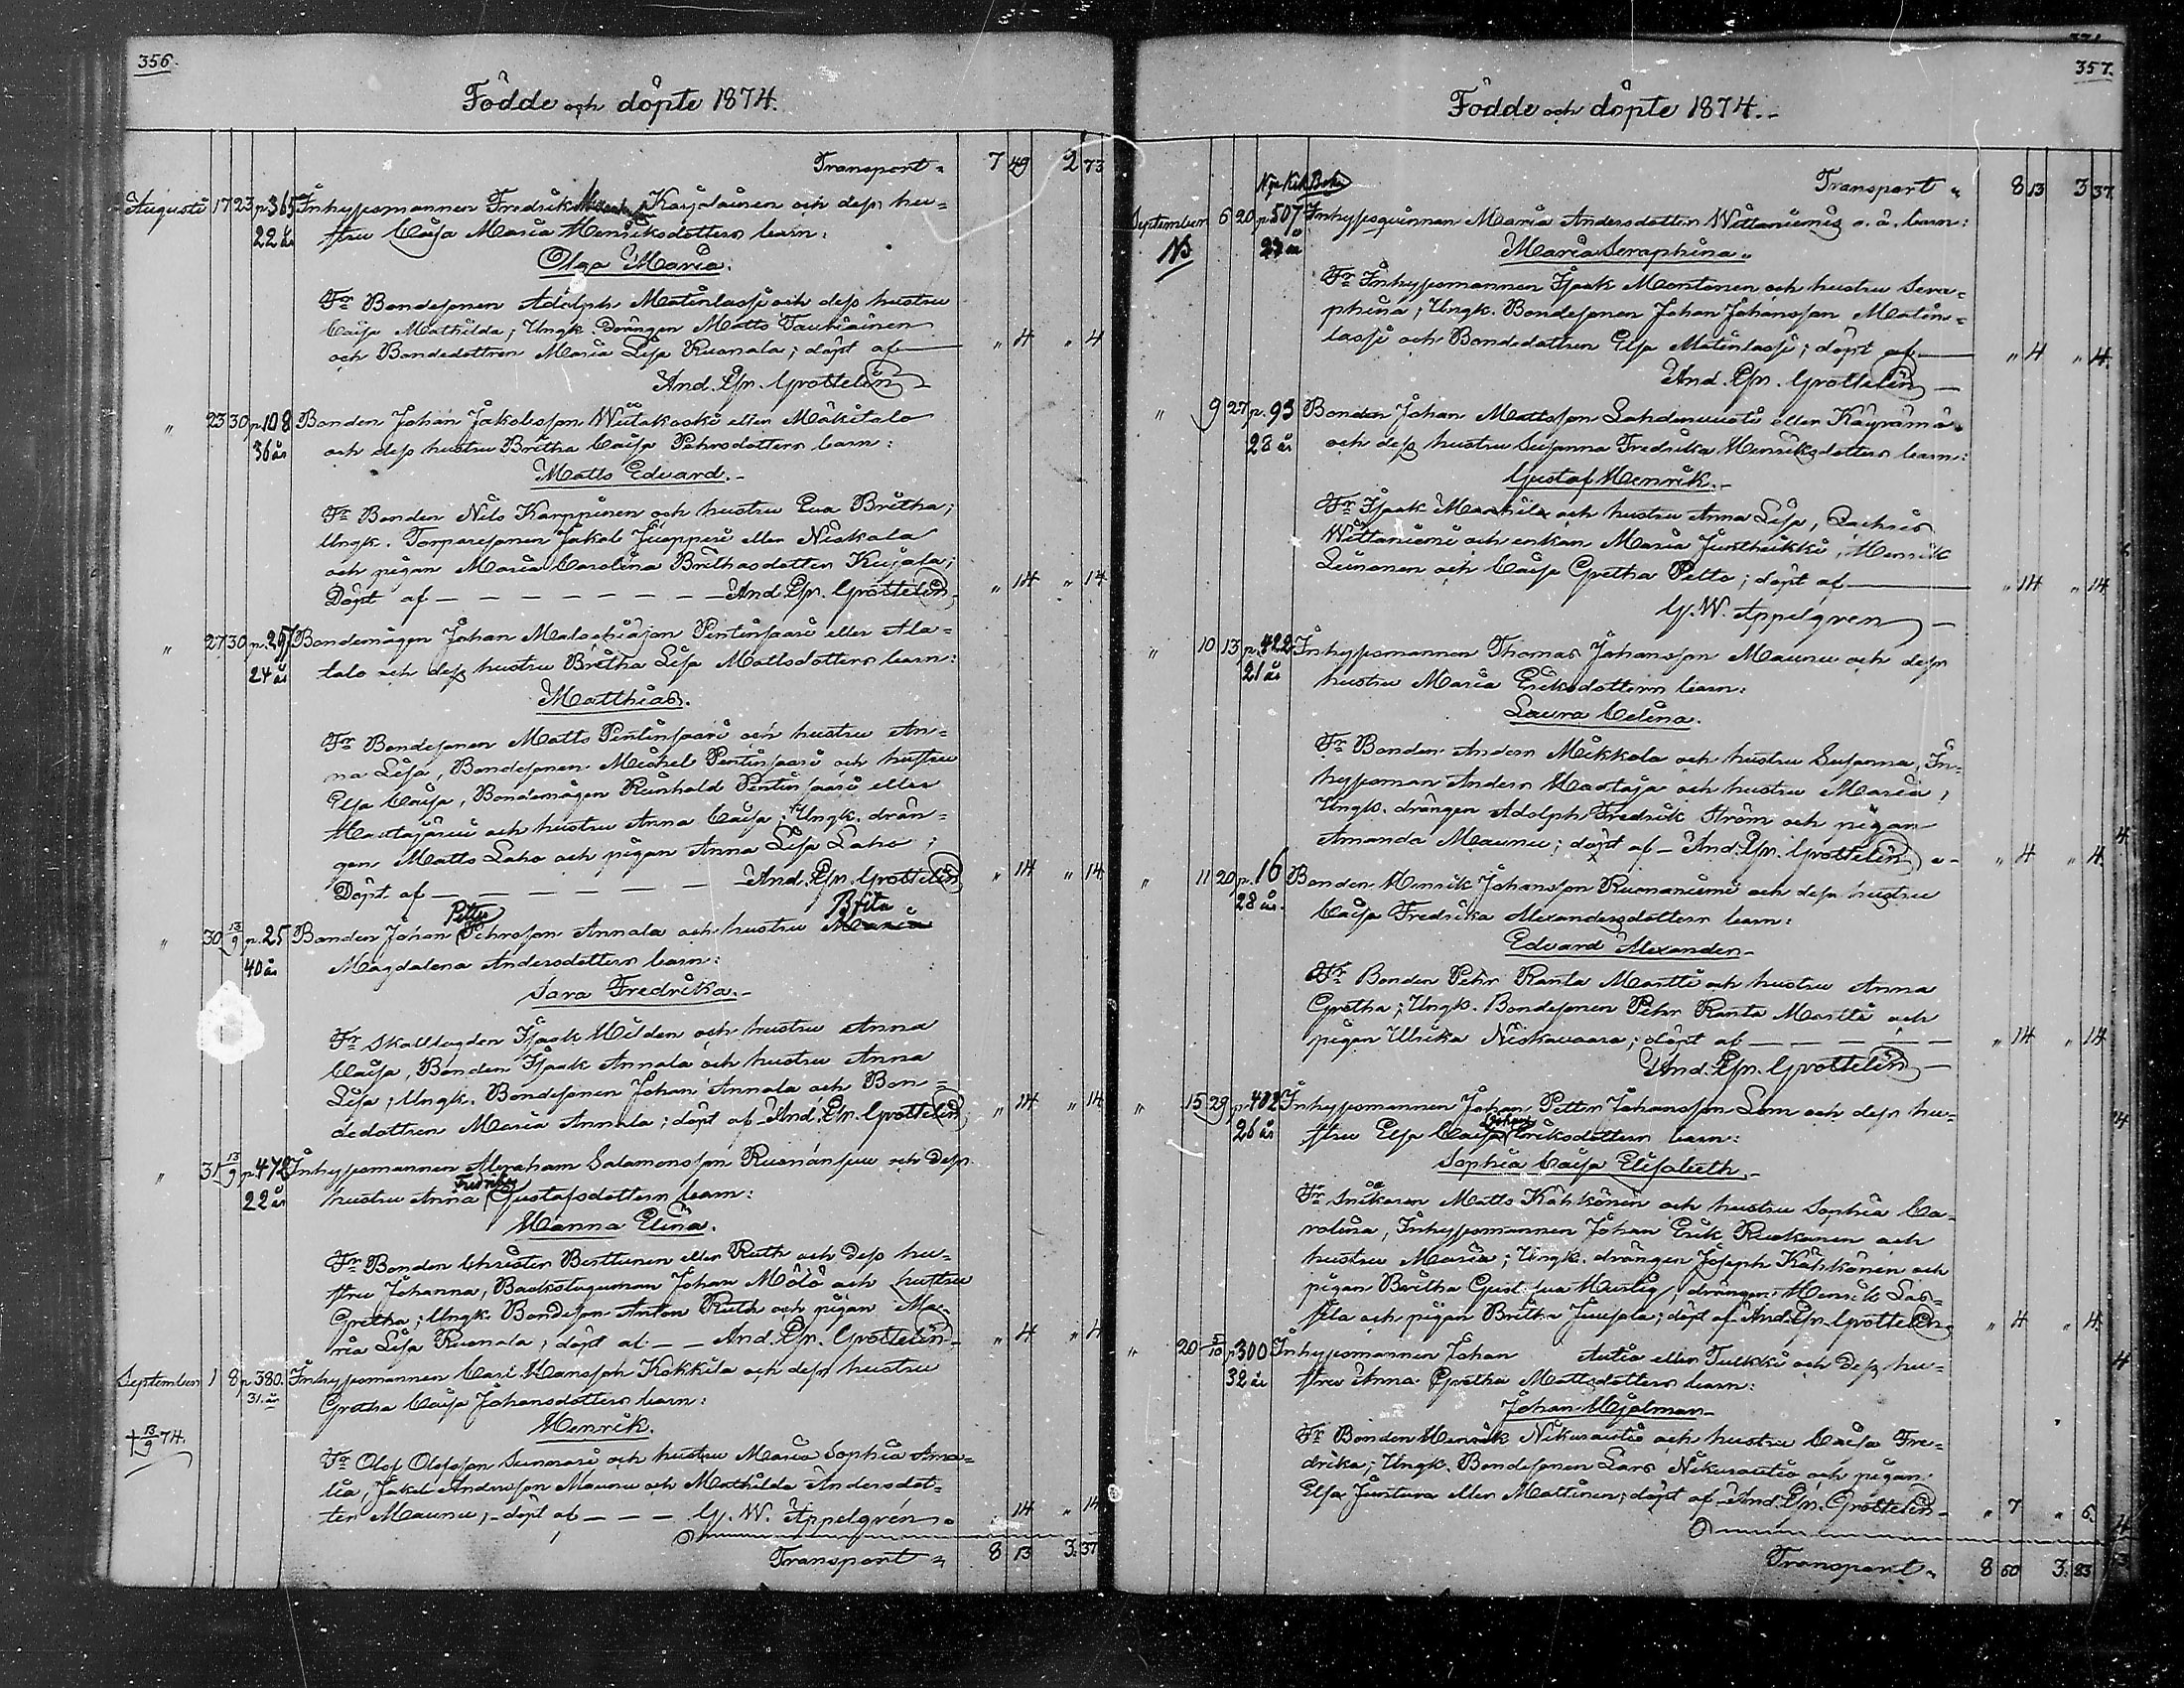 356.
Födde och döpte 1874.
Transport " 7 49 2 73
Augusti 17 23 p. 365 Inhysesmannen Fredrik Karjalainen och dess hu-
22 år stru Caisa Maria Henriksdotters barn:
Olga Maria.
Fr Bondesonen Adolph Matinlassi och dess hustru
Caisa Mathilda; Ungk. Drängen Matts Taukiainen
och Bondedottren Maria Lisa Ruonala; döpt af — " 4 " 4
And. Joh. Grottelin
" 23 30 p. 108 Bonden Johan Jakobsson Wiitakoski eller Mäkitalo
36 år och dess hustru Britha Caisa Pehrsdotters barn:
Matts Edvard.-
Fr Bonden Nils Karppinen och hustru Eva Britha;
Ungk. Torparesonen Jakob Juopperi eller Niskala
och pigan Maria Carolina Brithasdotter Kujala;
Döpt af — — — — — — — And. Joh. Grottelin " 14 " 14
" 27 30 p. 297 Bondemågen Johan Malachiasson Pentinsaari eller Ala-
24 år talo och dess hustru Britha Lisa Mattsdotters barn:
Matthias.
Fr Bondesonen Matts Pentinsaari och hustru An-
na Lisa, Bondesonen Michel Pentinsaari och hustru
Elsa Caisa, Bondemågen Reinhold Pentinsaari eller
Mautajärvi och hustru Anna Caisa; Ungk. drän-
gen Matts Laho och pigan Anna Lisa Laho;
Döpt af — — — — — — And. Joh. Grottelin " 14 " 14
Petter Brita
" 30 13/9 p. 25 Bonden Johan Pehrsson Annala och hustru Maria
40 år Magdalena Andersdotters barn:
Sara Fredrika.-
Fr Skallbygden Isaak Hilden och hustru Anna
Caisa, Bonden Isaak Annala och hustru Anna
Lisa; Ungk. Bondesonen Johan Annala och Bon-
dedottren Maria Annala; döpt af And. Joh. Grottelin " 14 " 14
" 31 13/9 p. 478 Inhysesmannen Abraham Salamonsson Ruonansuu och dess
Fredrika
22 år hustru Anna Gustafsdotters barn:
Hanna Elina.
Fr Bonden Christer Berttunen eller Ruth och dess hu-
stru Johanna, Backstuguman Johan Mölö och hustru
Gretha; Ungk. Bondeson Anton Ruth och pigan Ma-
ria Lisa Ruonala; döpt af — — And. Joh. Grottelin " 4 " 4
September 1 8 p. 380. Inhysesmannen Carl Hansson Kokkila och dess hustru
31. år Gretha Caisa Johansdotters barn:
Henrik.
† 13/9 74.
Fr Olof Olofsson Sunnari och hustru Maria Sophia Ama-
lia, Jakob Andersson Maunu och Mathilda Andersdot-
ter Maunu; döpt af — — — G. W. Appelgrén " 14 " 14
Transport " 8 13 3. 37
357.
Födde och döpte 1874.-
Transport " 8 13 3 37.
Nya Kyk. Boken
September 6 20 p. 507 Inhysesqvinnan Maria Andersdotter Wiittaniemis o. ä. barn:
Maria Seraphina.
Fr Inhysesmannen Isaak Montonen och hustru Sera-
phina; Ungk. Bondesonen Johan Johansson Matin-
lassi och Bondedottren Elsa Matinlassi; döpt af — " 4 " 4.
And. Joh. Grottelin —
" 9 27 p. 93 Bonden Johan Mattsson Lahdenvuoti eller Käyrämä-
28 år och dess hustru Susanna Fredrika Henriksdotters barn:
Gustaf Henrik.-
Fr Isaak och hustru Anna Lisa, Zachris
Wiittaniemi och enkan Maria Juntheikki; Henrik
Leinonen och Caisa Gretha Pelto; döpt af — " 14 " 14
G. W. Appelgren —
" 10 13 p. 422 Inhysesmannen Thomas Johansson Maunu och dess
21 år hustru Maria Eriksdotters barn:
Laura Celina.
Fr Bonden Anders Mikkola och hustru Susanna, In-
hysesman Anders Haataja och hustru Maria;
Ungk. drängen Adolph Fredrik Ström och pigan
Amanda Maunu; döpt af — And. Joh. Grottelin " 4 " 4.
" 11 20 p. 16 Bonden Henrik Johansson Ruonaniemi och dess hustru
28 år. Caisa Fredrika Alexandersdotters barn:
Edvard Alexander-
Fr Bonden Pehr Ranta Martti och hustru Anna
Gretha; Ungk. Bondesonen Pehr Ranta Martti och
pigan Ulrika Niskavaara; döpt af — — — — — " 14 " 14
And. Joh. Grottelin —
" 15 29 p. 402 Inhysesmannen Johan Petter Johansson Lom och dess hu-
Johans
26 år stru Elsa Caisa Eriksdotters barn:
Sophia Caisa Elisabeth.-
Fr Snikaren Matts Kähkönen och hustru Sophia Ca-
rolina, Inhysesmannen Johan Erik Ruokanen och
hustru Maria; Ungk. drängen Joseph Kähkönen och
pigan Britha drängen Henrik Las-
sila och pigan Britha Juusola; döpt af And. Joh. Grottelin " 4 " 4.
" 20 5/10 p. 300 Inhysesmannen Johan Autio eller Tulkki och dess hu-
32 år stru Anna Gretha Mattsdotters barn:
Johan Hjalmar-
Fr Bonden Henrik Nikurautio och hustru Caisa Fre-
drika; Ungk. Bondesonen Lars Nikurautio och pigan
Elsa Juntura eller Mattinen; döpt af And. Joh. Grottelin " 7 " 6.
Transport " 8 60 3. 83